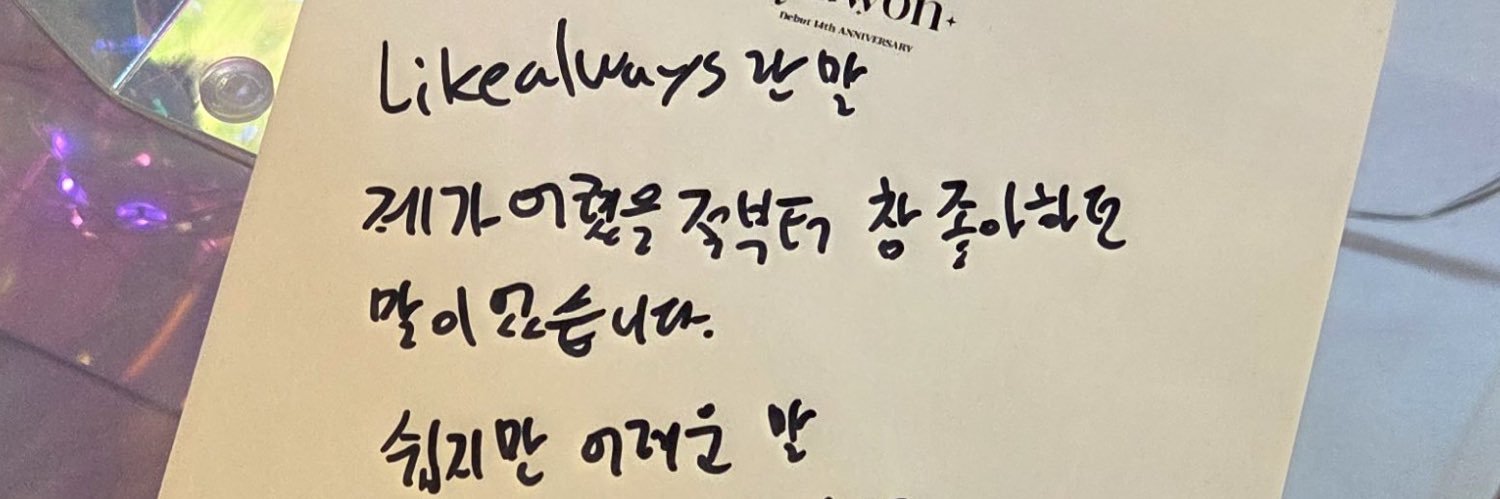 Debut 14th ANNIVERSARY
Likealways란 말
제가 어렸을 적부터 참 좋아하던
말이었습니다.
쉽지만 어려운 말